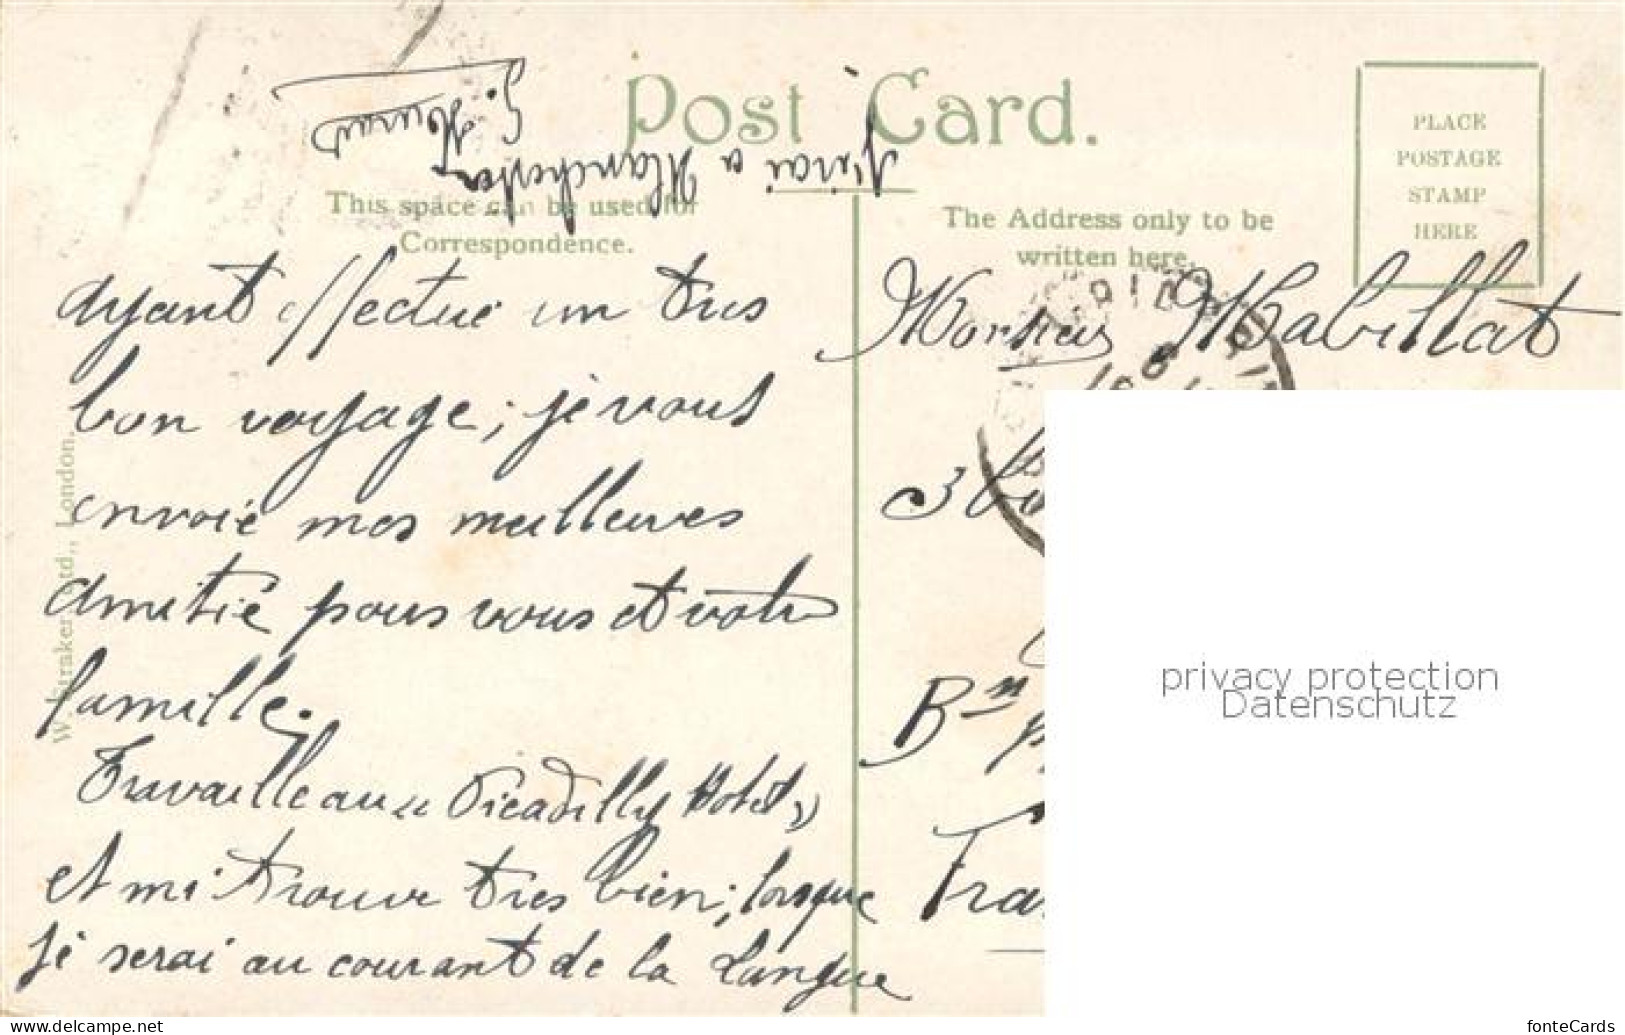 Post Card.
PLACE
POSTAGE
STAMP
HERE
This space can be used for
Correspondence.
The Address only to be
written here.
ayant effectué un tres
bon voyage; je vous
envoie mes meilleures
amitié pours vous et votre
famille.
Travaille au Picadilly Hotel,
et mi trouve tres bien; lorsque
je serai au courant de la Langue
j'irai a Manchester
Monsieur Mabillat
3
Bⁿ
Fra
W. Straker, Ltd., London.
privacy protection
Datenschutz
www.delcampe.net
fonteCards